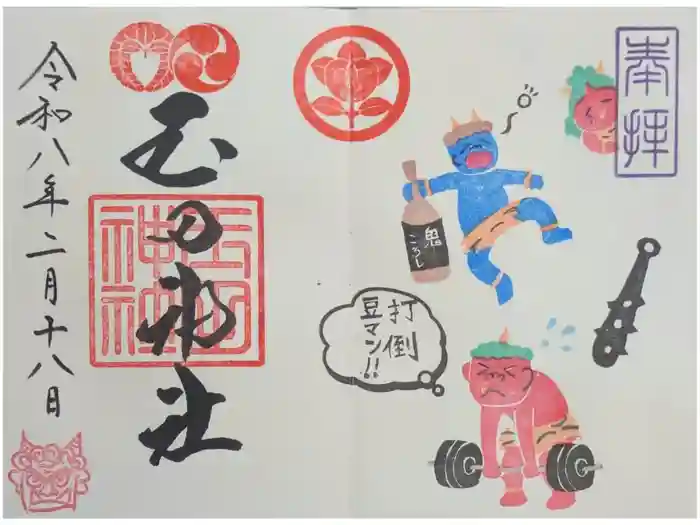 奉拝
鬼
ころし
打倒
豆マン!!
玉田神社
玉田
神社
令和八年二月十八日